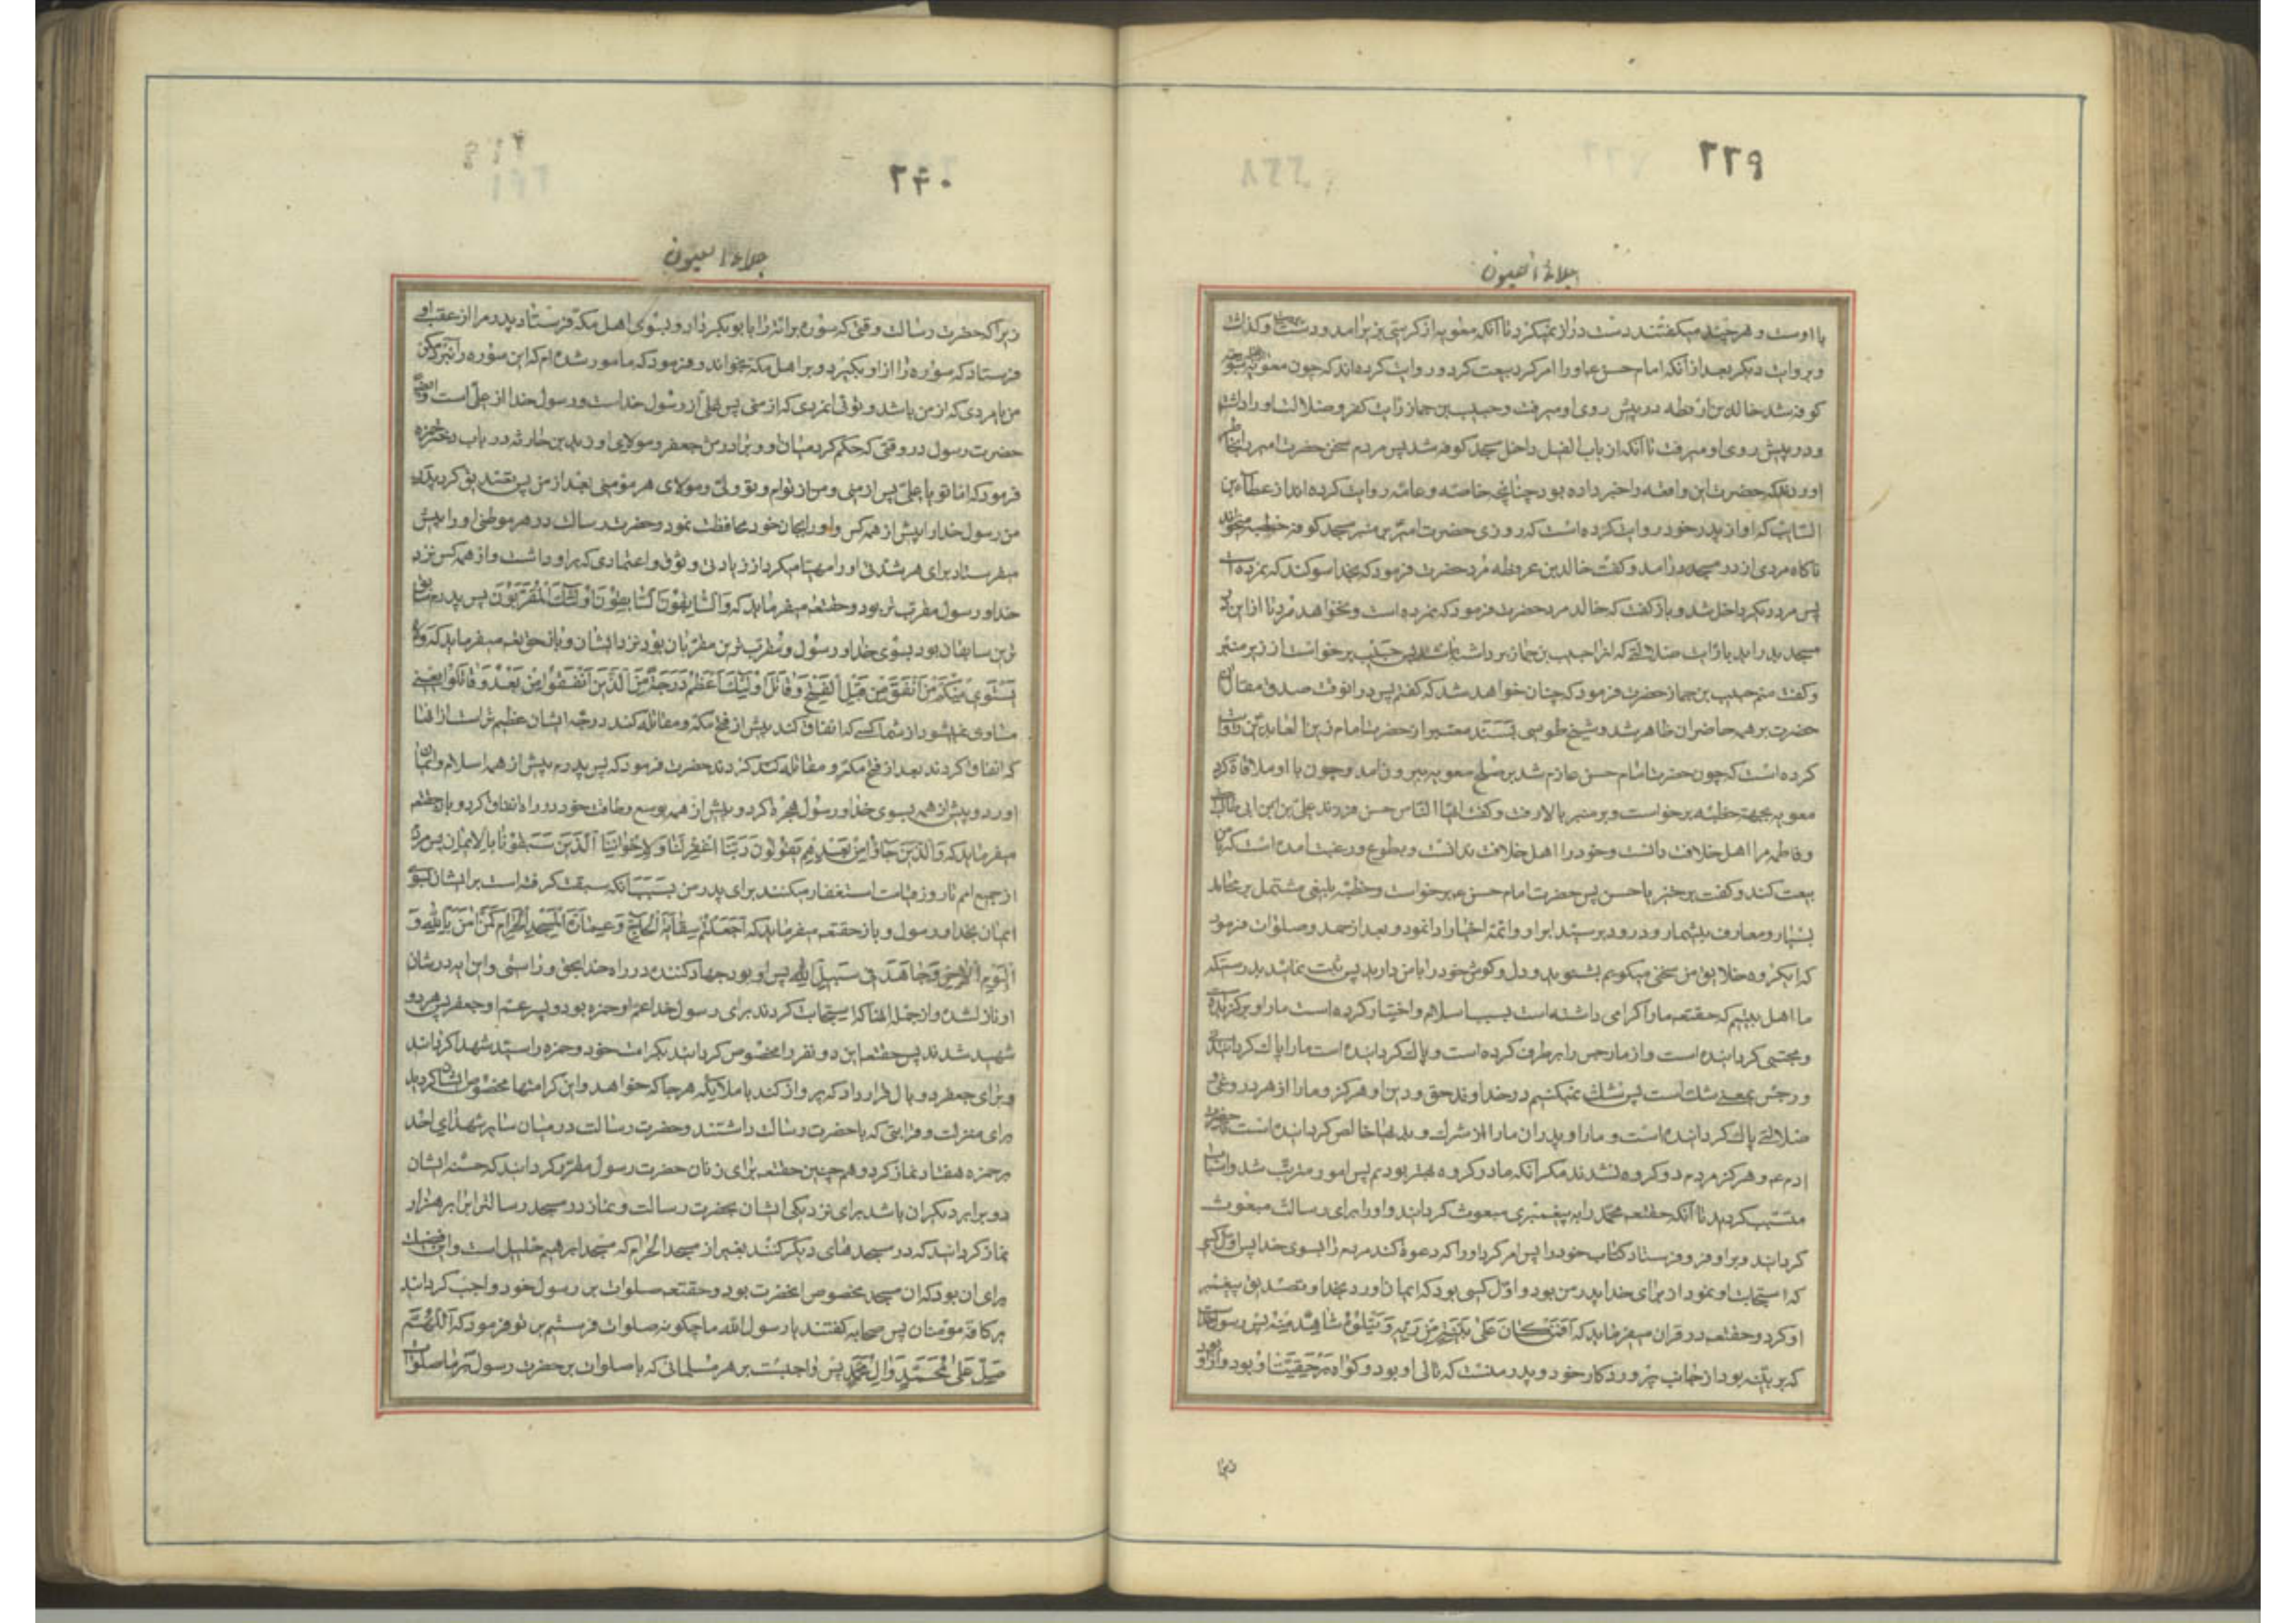 ۲۳۹
جلاء العیون
با اوست و هر چند میکفتند دست دراز نمیکرد تا انکه معویه از کرسی بزیر امد و دست و کذاشت
و بروایت دیکر بعد از آنکه امام حسن ع او را امر کرد بیعت کرد و روایت کرده اند که چون معویه
کوفه شد خالد بن ارفطه در پیش روی او میرفت و حبیب بن جماز رایت کفر و ضلالت او را داشت
و در پیش روی او میرفت تا آنکه از باب الفیل داخل مسجد کوفه شد پس مردم سخن حضرت امیر
اوردند که حضرت این واقعه را خبر داده بود چنانچه خاصه و عامه روایت کرده اند از عطاء بن
السایب که او از پدر خود روایت کرده است که روزی حضرت امیر بر منبر مسجد کوفه خطبه میخواند
ناکاه مردی از در مسجد درامد و کفت خالد بن عرفطه مرد حضرت فرمود که بخدا سوکند که نمرده
پس مرد دیکر داخل شد و باز کفت که خالد مرد حضرت فرمود که نمرده است و نخواهد مرد تا از این
مسجد بدر اید با رایت ضلالتی که انرا حبیب بن جماز برداشته باشد پس حبیب برخواست از زیر منبر
و کفت منم حبیب بن جماز حضرت فرمود که چنان خواهد شد که کفتم پس در انوقت صدق مقال
حضرت بر همه حاضران ظاهر شد و شیخ طوسی بسند معتبر از حضرت امام زین العابدین روایت
کرده است که چون حضرت امام حسن عازم شد بر صلح معویه بیرون امد و چون با او ملاقاة کرد
معویه بجهة خطبه برخواست و بر منبر بالا رفت و کفت ایها الناس حسن فرزند علی بن ابی طالب
و فاطمه مرا اهل خلافت دانست و خود را اهل خلافت ندانست و بطوع و رغبت امده است که با من
بیعت کند و کفت برخیز یا حسن پس حضرت امام حسن ع برخواست و خطبه بلیغی مشتمل بر محامد
بسیار و معارف بیشمار و درود بر سید ابرار و ائمه اخیار ادا نمود و بعد از حمد و صلوات فرمود
که ایکروه خلایق من سخنی میکویم بشنوید و دل و کوش خود را با من دارید پس ثبت نمائید بدرستیکه
ما اهل بیتیم که حقتعه ما را کرامی داشته است بسبب اسلام و اختیار کرده است ما را و برکزیده
و مجتبی کردانیده است و از ما رجس را برطرف کرده است و پاک کردانیده است ما را پاک کردانیدنی
و رجس بمعنی شک است پس شک نمیکنیم در خداوند حق و دین او هرکز و ما را از هر دروغی و
ضلالتی پاک کردانیده است و ما را و پدران ما را از شرک و بدیها خالص کردانیده است
ادم ع و هرکز مردم دو کروه نشدند مکر آنکه ما در کروه بهتر بودیم پس امور مترتب شد و اسباب
مسبب کردید تا آنکه حقتعه محمد را به پیغمبری مبعوث کردانید و او را برای رسالت مبعوث
کردانید و بر او فرو فرستاد کتاب خود را پس امر کرد او را که دعوة کند مردم را بسوی خدا پس اول کسی
که استجابت او نمود از برای خدا پدر من بود و اول کسی بود که ایمان اورد بخدا و تصدیق پیغمبر
او کرد و حقتعه در قران میفرماید که اَفَمَنْ کانَ عَلی بَیِّنَةٍ مِنْ رَبِّهِ وَ یَتْلُوهُ شاهِدٌ مِنْهُ پس رسول خدا
که بر بینه بود از جانب پروردکار خود و پدر منست که تالی او بود و کواه بر حقیقت او بود و از او
زیرا
۲۴۰
جلاء العیون
زیرا که حضرت رسالت وقتی که سوره برائة را با بوبکر داد و بسوی اهل مکه فرستاد پدر مرا از عقب او
فرستاد که سوره را از او بکیرد و بر اهل مکه بخواند و فرمود که مامور شده ام که این سوره را نبرد مکر
من یا مردی که از من باشد و توئی انمردی که از منی پس علی از رسول خداست و رسول خدا از علی است
حضرت رسول در وقتی که حکم کرد میان او و برادرش جعفر و مولای او زید بن حارثه در باب دختر حمزه
فرمود که اما تو یا علی پس از منی و من از توام و تو ولی و مولای هر مؤمنی بعد از من پس تصدیق کرد پدر
من رسول خدا را پیش از همه کس و او را بجان خود محافظت نمود و حضرت رسالت در هر موطنی او را پیش
میفرستاد برای هر شدتی او را مهیا میکرد از زیادتی وثوق و اعتمادی که بر او داشت و از همه کس نزد
خدا و رسول مقرب تر بود و حقتعه میفرماید که وَ السّابِقُونَ السّابِقُونَ اُولئِکَ الْمُقَرَّبُونَ پس پدرم سابق
ترین سابقان بود بسوی خدا و رسول و مقرب ترین مقربان بود نزد ایشان و باز حقتعه میفرماید که لا
یَسْتَوی مِنْکُمْ مَنْ اَنْفَقَ مِنْ قَبْلِ الْفَتْحِ وَ قاتَلَ اُولئِکَ اَعْظَمُ دَرَجَةً مِنَ الَّذینَ اَنْفَقُوا مِنْ بَعْدُ وَ قاتَلُوا یعنی
مساوی نمیشود از شما کسی که انفاق کند پیش از فتح مکه و مقاتله کند درجه ایشان عظیم تر است از انها
که انفاق کردند بعد از فتح مکه و مقاتله کردند حضرت فرمود که پس پدرم پیش از همه اسلام و ایمان
اورد و پیش از همه بسوی خدا و رسول هجرة کرد و پیش از همه بوسع و طاقت خود در راه انفاق کرد و باز حقتعه
میفرماید که وَ الَّذینَ جاؤُا مِنْ بَعْدِهِمْ یَقُولُونَ رَبَّنَا اغْفِرْ لَنا وَ لِاِخْوانِنَا الَّذینَ سَبَقُونا بِالْایمانِ پس مردم
از جمیع امم تا روز قیامت استغفار میکنند برای پدر من بسبب انکه سبقت کرفته است بر ایشان بسوی
ایمان بخدا و رسول و باز حقتعه میفرماید که اَجَعَلْتُمْ سِقایَةَ الْحاجِّ وَ عِمارَةَ الْمَسْجِدِ الْحَرامِ کَمَنْ امَنَ بِاللهِ وَ
الْیَوْمِ الْاخِرِ وَ جاهَدَ فی سَبیلِ اللهِ پس او بود جهاد کننده در راه خدا بحق و راستی و این ایه در شان
او نازل شده و از جمله انها که استجابت کردند برای رسول خدا عم او حمزه بود و پسر عم او جعفر پس هر دو
شهید شدند پس حقتعه این دو نفر را مخصوص کردانید بکرامت خود و حمزه را سید شهدا کردانید
و برای جعفر دو بال قرار داد که پرواز کند با ملایکه هر جا که خواهد و این کرامتها مخصوص ایشان کردید
برای منزلت و قرابتی که با حضرت رسالت داشتند و حضرت رسالت در میان سایر شهدای احد
بر حمزه هفتاد نماز کرد و همچنین حقتعه برای زنان حضرت رسول مقرر کردانید که حسنه ایشان
دو برابر دیکران باشد برای نزدیکی ایشان بحضرت رسالت و نماز در مسجد رسالترا برابر هزار
نماز کردانید که در مسجدهای دیکر کنند بغیر از مسجد الحرام که مسجد ابرهیم خلیل است و این فضیلت
برای ان بود که ان مسجد مخصوص انحضرت بود و حقتعه صلوات بر رسول خود واجب کردانید
بر کافه مؤمنان پس صحابه کفتند یا رسول الله ما چکونه صلوات فرستیم بر تو فرمود که اَللّهُمَّ
صَلِّ عَلی مُحَمَّدٍ وَ الِ مُحَمَّدٍ پس واجبست بر هر مسلمانی که با صلوات بر حضرت رسول بر ما صلوات